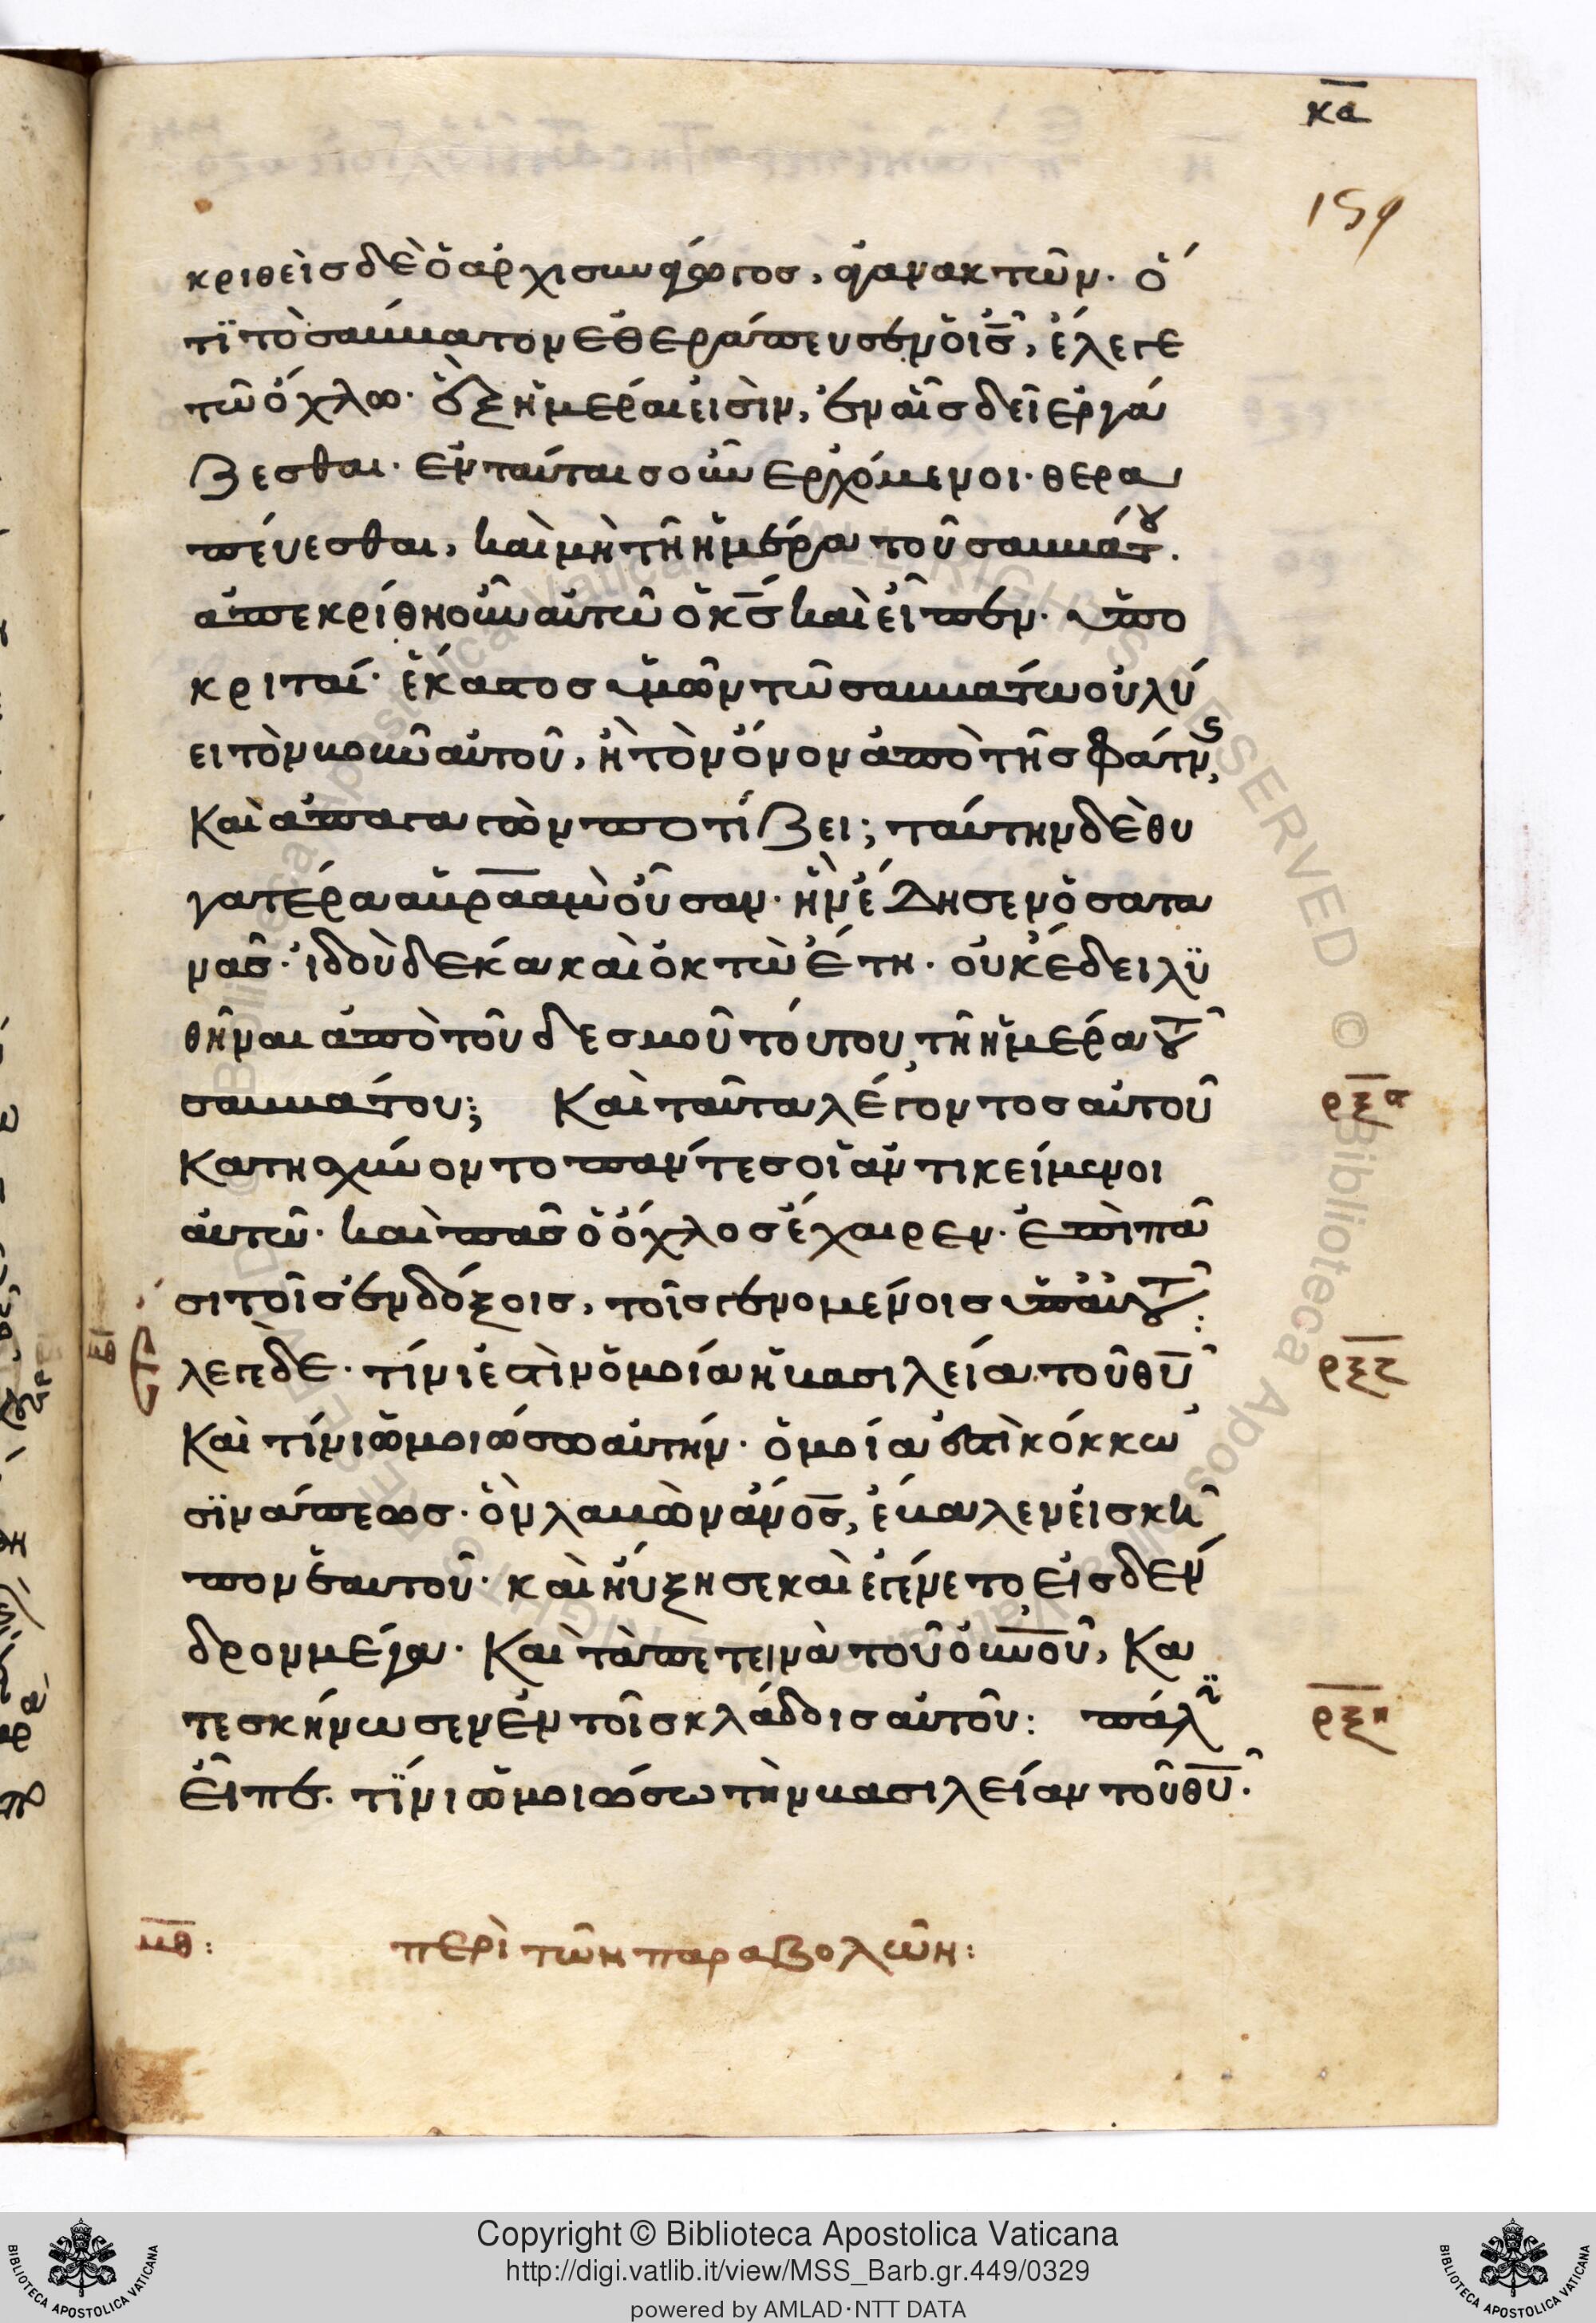 κα
159
κριθεὶς δὲ ὁ ἀρχισυνάγωγος, ἀγανακτῶν· ὅ
τι τὸ σαββάτον ἐθεράπευσεν ὁ ις, ἔλεγε
τῶ ὄχλω· ἓξ ἡμέραι εἰσὶν, ἐν αἷς δεῖ ἐργά
ζεσθαι· ἐν ταύταις οὖν ἐρχόμενοι· θερα
πεύεσθαι, καὶ μὴ τῆ ἡμέρα τοῦ σαββάτου.
ἀπεκρίθη οὖν αὐτῶ ὁ κς καὶ εἶπεν· ὑπο
κριταί· ἕκαστος ὑμῶν τῶ σαββάτω οὐ λύ
ει τὸν βοῦν αὐτοῦ, ἢ τὸν ὄνον ἀπὸ τῆς φάτνης,
καὶ ἀπαγαγὼν ποτίζει; ταύτην δὲ θυ
γατέρα ἀβραὰμ οὖσαν· ἣν ἔδησεν ὁ σατα
νᾶς· ἰδοὺ δέκα καὶ ὀκτὼ ἔτη· οὐκ ἔδει λυ
θῆναι ἀπὸ τοῦ δεσμοῦ τούτου, τῆ ἡμέρα τοῦ
σαββάτου; Καὶ ταῦτα λέγοντος αὐτοῦ
ρξα
κατησχύνοντο πάντες οἱ ἀντικείμενοι
αὐτῶ· καὶ πᾶς ὁ ὄχλος ἔχαιρεν· ἐπὶ πᾶ
σι τοῖς ἐνδόξοις, τοῖς γενομένοις ὑπ' αὐτοῦ:
λεγε δὲ· τίνι ἐστὶν ὁμοία ἡ βασιλεία τοῦ θυ
καὶ τίνι ὁμοιώσω αὐτήν· ὁμοία ἐστὶ κόκκω
σινάπεως· ὃν λαβὼν ανος, ἔβαλεν εἰς κῆ
πον ἑαυτοῦ· καὶ ηὔξησε καὶ ἐγένετο εἰς δέν
δρον μέγα· Καὶ τὰ πετεινὰ τοῦ ουνου, κα
τεσκήνωσεν ἐν τοῖς κλάδοις αὐτοῦ: πάλιν
ρξη
εἶπε· τίνι ὁμοιώσω τὴν βασιλείαν τοῦ θυ·
μθ: περὶ τῶν παραβολῶν:
Copyright © Biblioteca Apostolica Vaticana
http://digi.vatlib.it/view/MSS_Barb.gr.449/0329
powered by AMLAD·NTT DATA